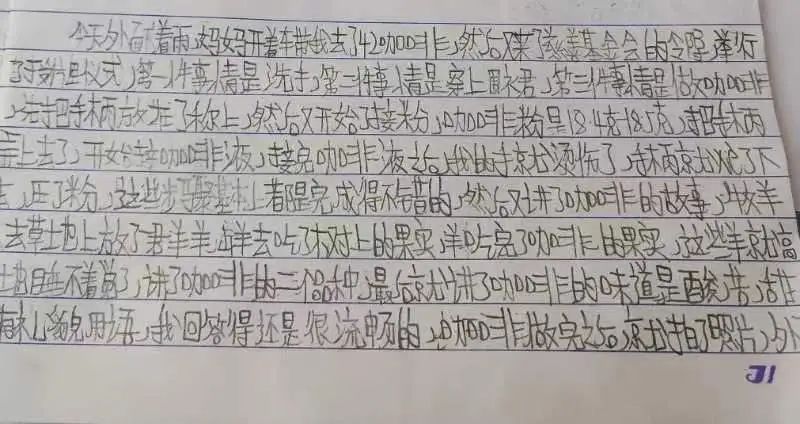 今天外面下着雨,妈妈开着车带我去了420咖啡,然后又来了慈善基金会的令,举行
了开始仪式,第一件事情是洗手,第二件事情是穿上围裙,第三件事情是做咖啡
,先把手柄放在了称上,然后又开始了接粉,咖啡粉是18.4克18.5克,手柄
上去了,开始接咖啡液,接完咖啡液之后,我的手就烫伤了,手柄就
,压了粉,这些步骤基本上都是完成得不错的,然后又讲了咖啡的故事,牧羊
去草地上放了群羊,羊去吃了树上的果实,羊吃完了咖啡的果实,这些羊就高
地睡不着觉了,讲了咖啡的三个品种,最后就讲了咖啡的味道是酸,苦,
有礼貌用语,我回答得还是很流畅的,咖啡做完之后,就拍了照片,外
31